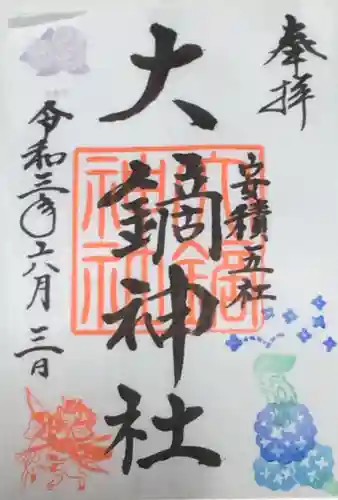 奉拝
安積五社
大鏑神社
令和三年六月三日